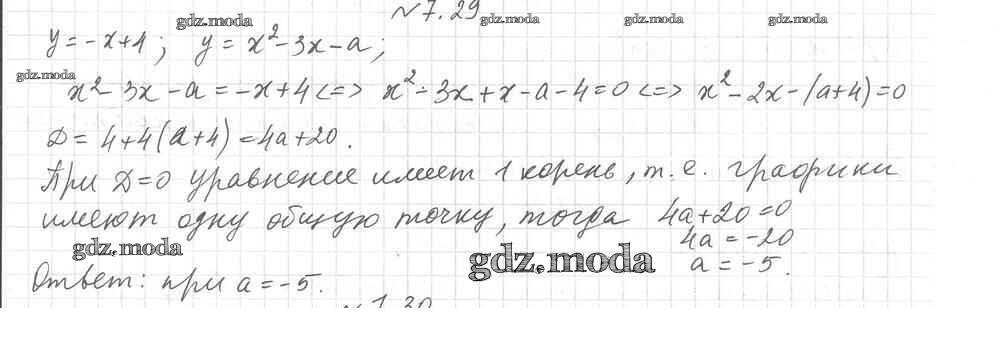 №7.29
gdz.moda gdz.moda gdz.moda gdz.moda
y = -x+4; y = x²-3x-a;
gdz.moda
x²-3x-a = -x+4 <=> x²-3x+x-a-4=0 <=> x²-2x-(a+4)=0
D = 4+4(a+4) = 4a+20.
При D=0 уравнение имеет 1 корень, т.е. графики
имеют одну общую точку, тогда 4a+20=0
4a = -20
gdz.moda gdz.moda a = -5.
Ответ: при a = -5.